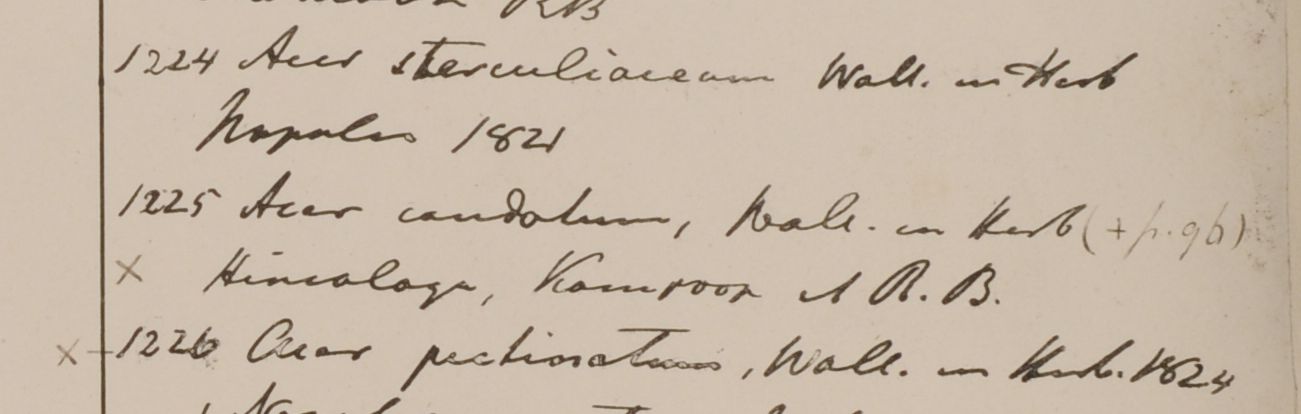 RB
1224 Acer sterculiaceum Wall. in Herb
Napalia 1821
1225 Acer caudatum, Wall. in Herb (+ p. 96)
x Himalaya, Kamroop et R. B.
x 1226 Acer pectinatum, Wall. in Herb. 1824